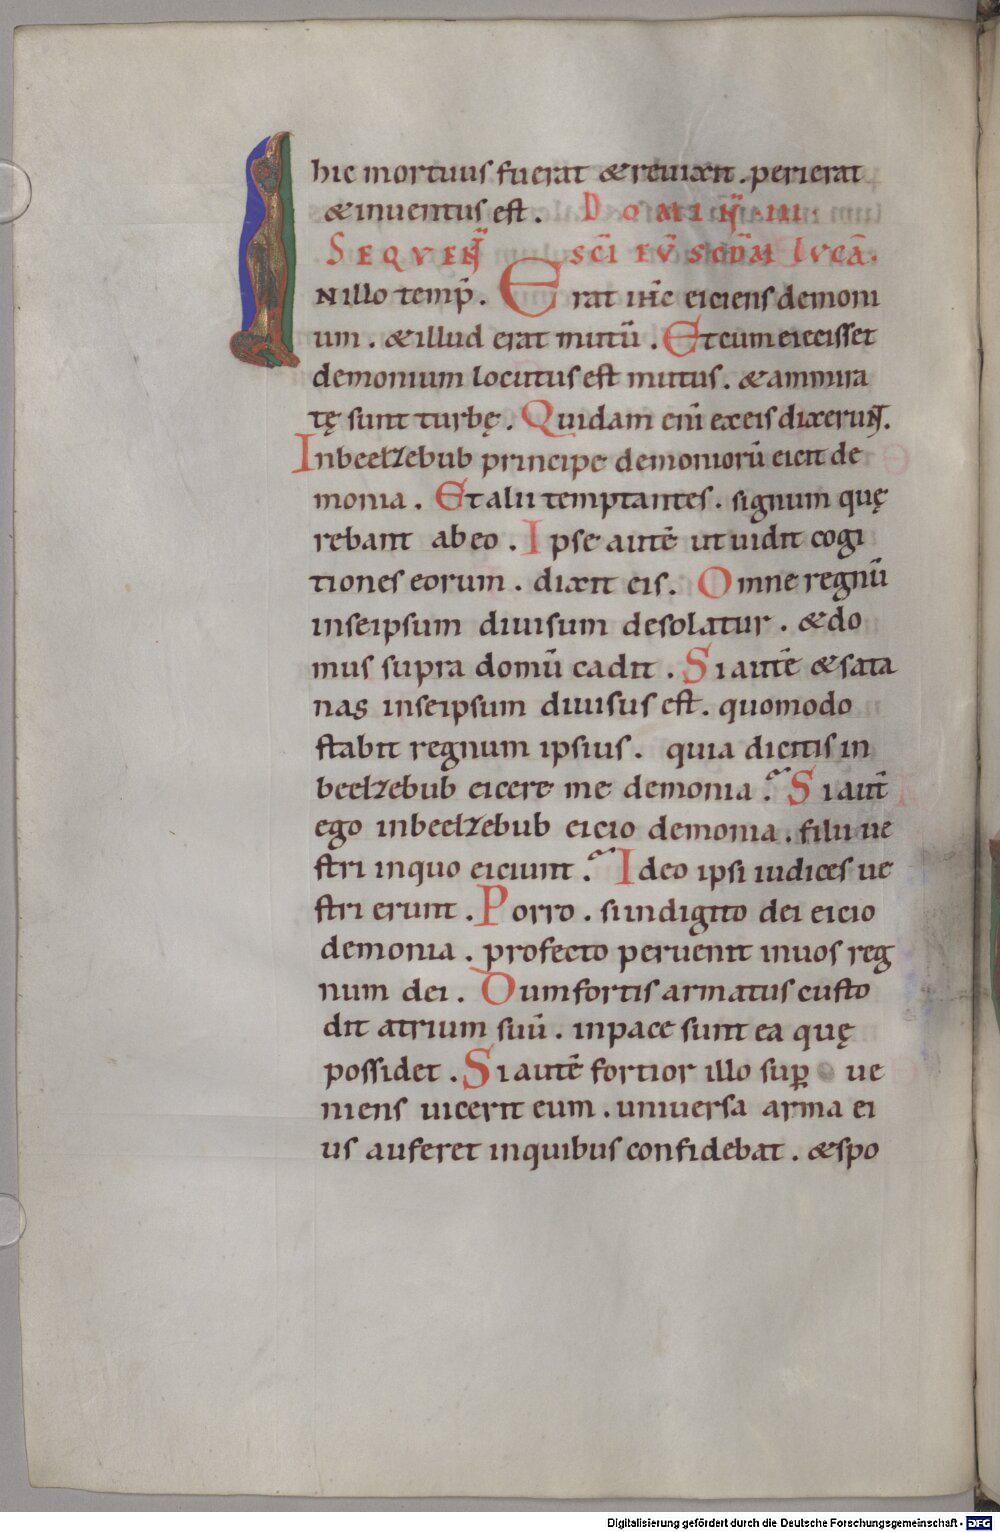 hic mortuus fuerat & reuixit . perierat
& inuentus est . DOMIN̄ . III .
SEQUEN̄ SCI EŪ SCDM LUCĀ .
I N illo temp̄ . Erat ih̄c eiciens demoni
um . & illud erat mutū . Et cum eiecisset
demonium locutus est mutus . & ammira
tę sunt turbę . Quidam eni ex eis dixerunt .
In beelzebub principe demoniorū eicit de
monia . Et alii temptantes . signum quę
rebant ab eo . Ipse autē ut uidit cogi
tiones eorum . dixit eis . Omne regnū
in se ipsum diuisum desolatur . & do
mus supra domū cadit . Si autē & sata
nas in se ipsum diuisus est . quomodo
stabit regnum ipsius . quia dicitis in
beelzebub eicere me demonia ? Si aut̄
ego in beelzebub eicio demonia . filii ue
stri in quo eiciunt ? Ideo ipsi iudices ue
stri erunt . Porro . si in digito dei eicio
demonia . profecto peruenit in uos reg
num dei . Dum fortis armatus custo
dit atrium suū . in pace sunt ea quę
possidet . Si autē fortior illo suꝑ ue
niens uicerit eum . uniuersa arma ei
us auferet in quibus confidebat . & spo
Digitalisierung gefördert durch die Deutsche Forschungsgemeinschaft - DFG